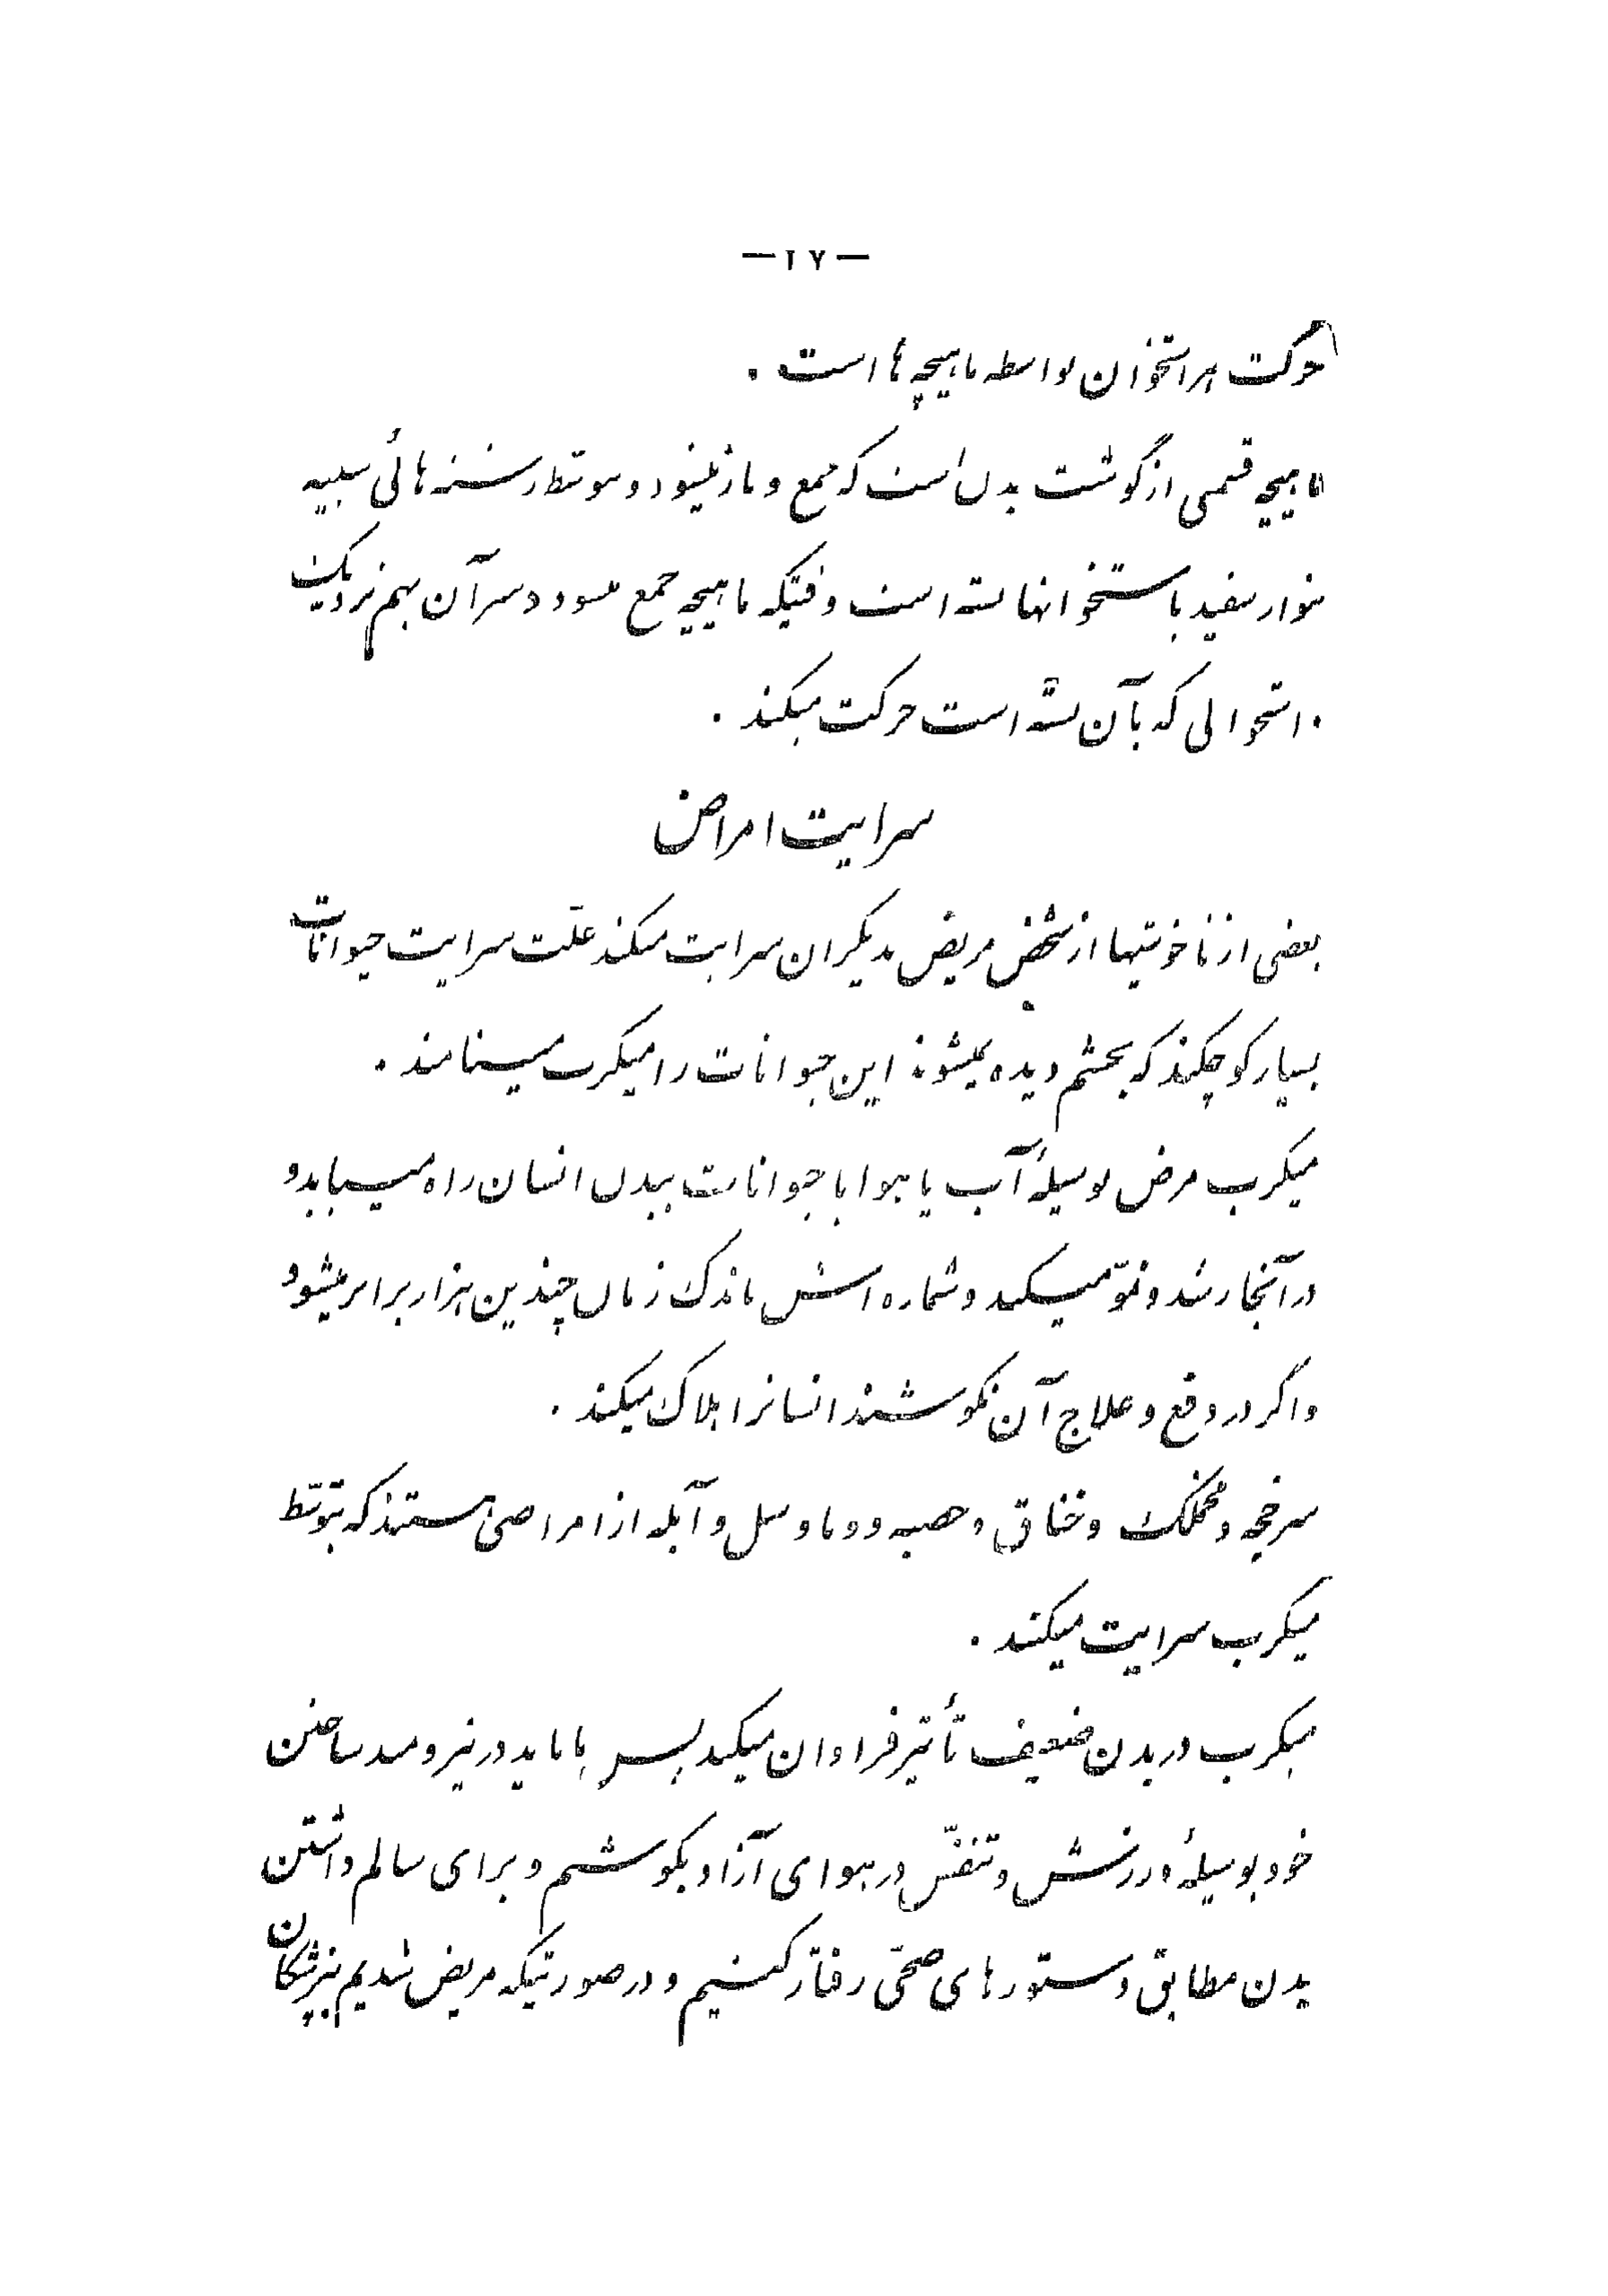 — ۲۷ —
حرکت هر استخوان بواسطه ماهیچه ها است .
ماهیچه قسمی از گوشت بدن است که جمع و باز میشود و بتوسط رشته هائی شبیه
بنوار سفید باستخوانها بسته است وقتیکه ماهیچه جمع میشود دو سر آن بهم نزدیک
و استخوانی که بآن بسته است حرکت میکند .
سرایت امراض
بعضی از ناخوشیها از شخص مریض بدیگران سرایت میکند علّت سرایت حیوانات
بسیار کوچکند که بچشم دیده نمیشوند این حیوانات را میکرب مینامند .
میکرب مرض بوسیلهٔ آب یا هوا یا حیوانات ببدن انسان راه مییابد و
در آنجا رشد و نموّ میکند و شماره اش باندک زمان چندین هزار برابر میشود
و اگر در دفع و علاج آن نکوشند انسانرا هلاک میکند .
سرخجه و مخملک و خناق و حصبه و وبا و سل و آبله از امراضی هستند که بتوسّط
میکرب سرایت میکند .
میکرب در بدن ضعیف تأثیر فراوان میکند پس ما باید در نیرومند ساختن
خود بوسیلهٔ ورزش و تنفّس در هوای آزاد بکوشیم و برای سالم داشتن
بدن مطابق دستورهای صحّی رفتار کنیم و در صورتیکه مریض شدیم بپزشکان